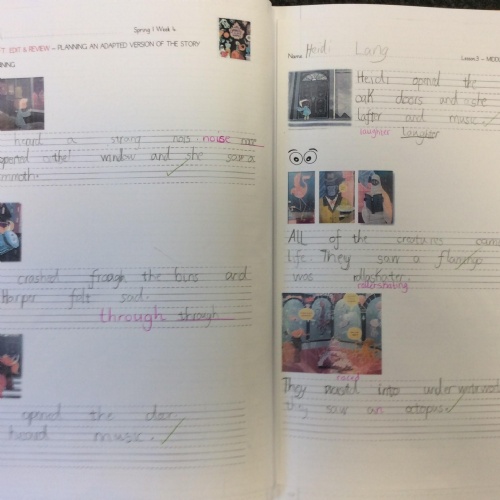 Spring 1 Week 4
T, EDIT & REVIEW – PLANNING AN ADAPTED VERSION OF THE STORY
NING
heard a strang nois noise
opened the window and she saw a
mmoth.
crashed froogh the bins and
Harper felt sad.
through through
opened the door.
heard music.
Name Heidi Lang
Lesson 3 – MIDD
Heidi opened the
oak doors and she
lafter and music
laughter laughter
All of the creatures cam
life. They saw a flamingo
was rollaskater.
rollerskating
raced
They into underwaterworl
they saw an octopus.